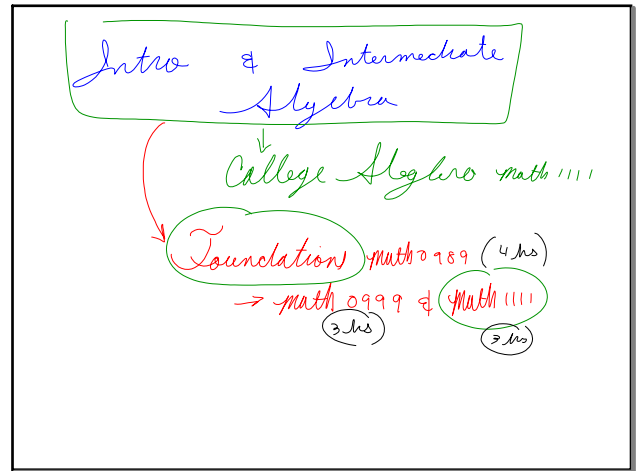 Intro & Intermediate
Algebra
College Algebra math 1111
Foundation math 0989 (4 hs)
→ math 0999 & math 1111
3 hs 3 hs